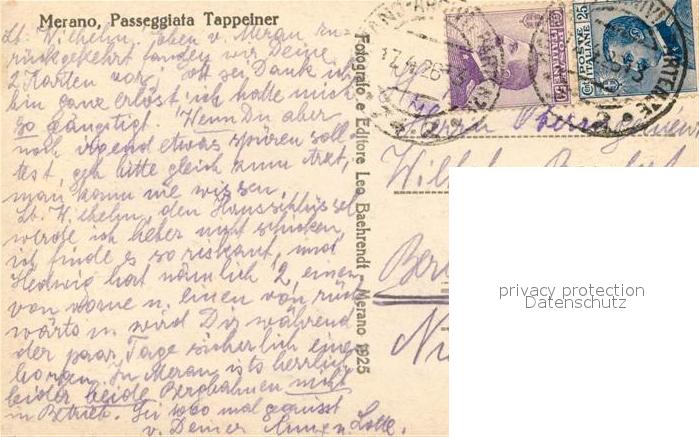 Merano, Passeggiata Tappeiner
Lb. Wilhelm, soeben v. Meran zu-
rückgekehrt fanden wir Deine
2 Karten vor, Gott sei Dank ich
bin ganz erlöst, ich hatte mich
so geängstigt. Wenn Du aber
noch irgend etwas spüren soll-
test, geh bitte gleich zum Arzt,
man kann nie wissen.
Lb. Wilhelm, den Hausschlüssel
werde ich lieber nicht schicken,
ich finde es so riskant, und
Hedwig hat nämlich 2, einen
von vorne u. einen von rück
wärts u. wird Dir während
der paar Tage sicherlich einen
borgen. In Meran ists herrlich
leider beide Bergbahnen nicht
in Betrieb. Sei 1000 mal geküsst
v. Deiner Anne u. Lotte.
Fotografo e Editore Leo Baehrendt - Merano 1925
POSTE ITALIANE
25
Herrn
Wilhelm
Ber
privacy protection
Datenschutz